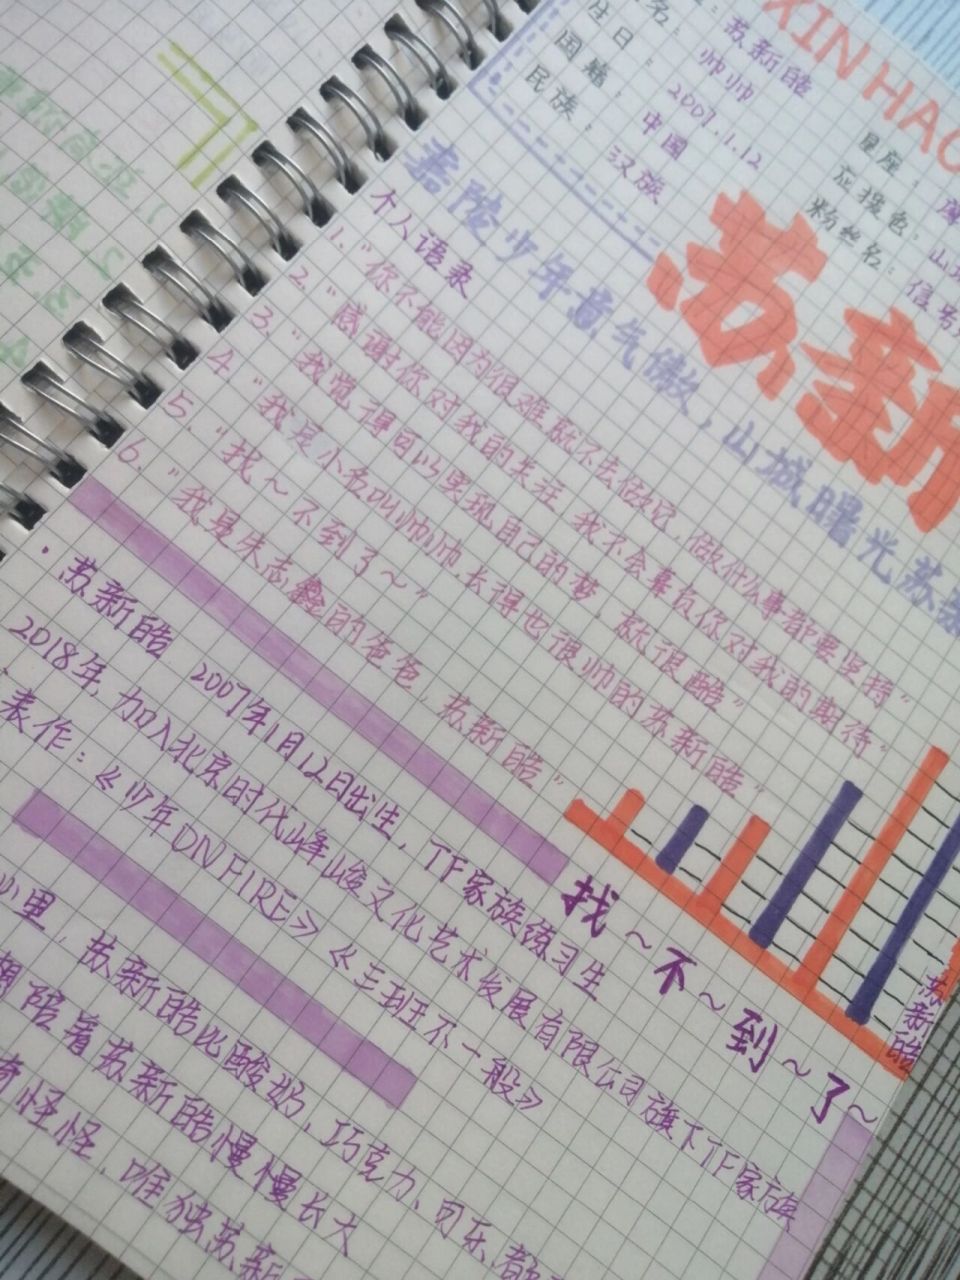 XINHAO
名：苏新皓
帅帅
生日：2007.1.12
国籍：中国
民族：汉族
星座：
应援色：
粉丝名：
苏新
嘉陵少年意气傲，山城曙光苏
个人语录
1.“你不能因为很难就不去做它，做什么事都要坚持”
2.“感谢你对我的关注 我不会辜负你对我的期待”
3.“我觉得可以实现自己的梦，就很酷”
4.“我是小名叫帅帅，长得也很帅的苏新皓”
5.“找～不到了～”
6.“我是朱志鑫的爸爸，苏新皓”
·苏新皓 2007年1月12日出生，TF家族练习生
2018年，加入北京时代峰峻文化艺术发展有限公司旗下TF家族
表作：《少年ON FIRE》《三班不一般》
找～不～到～了～
苏新皓
心里，苏新皓比酸奶，巧克力、可乐都
陪着苏新皓慢慢长大
奇怪怪，唯独苏新